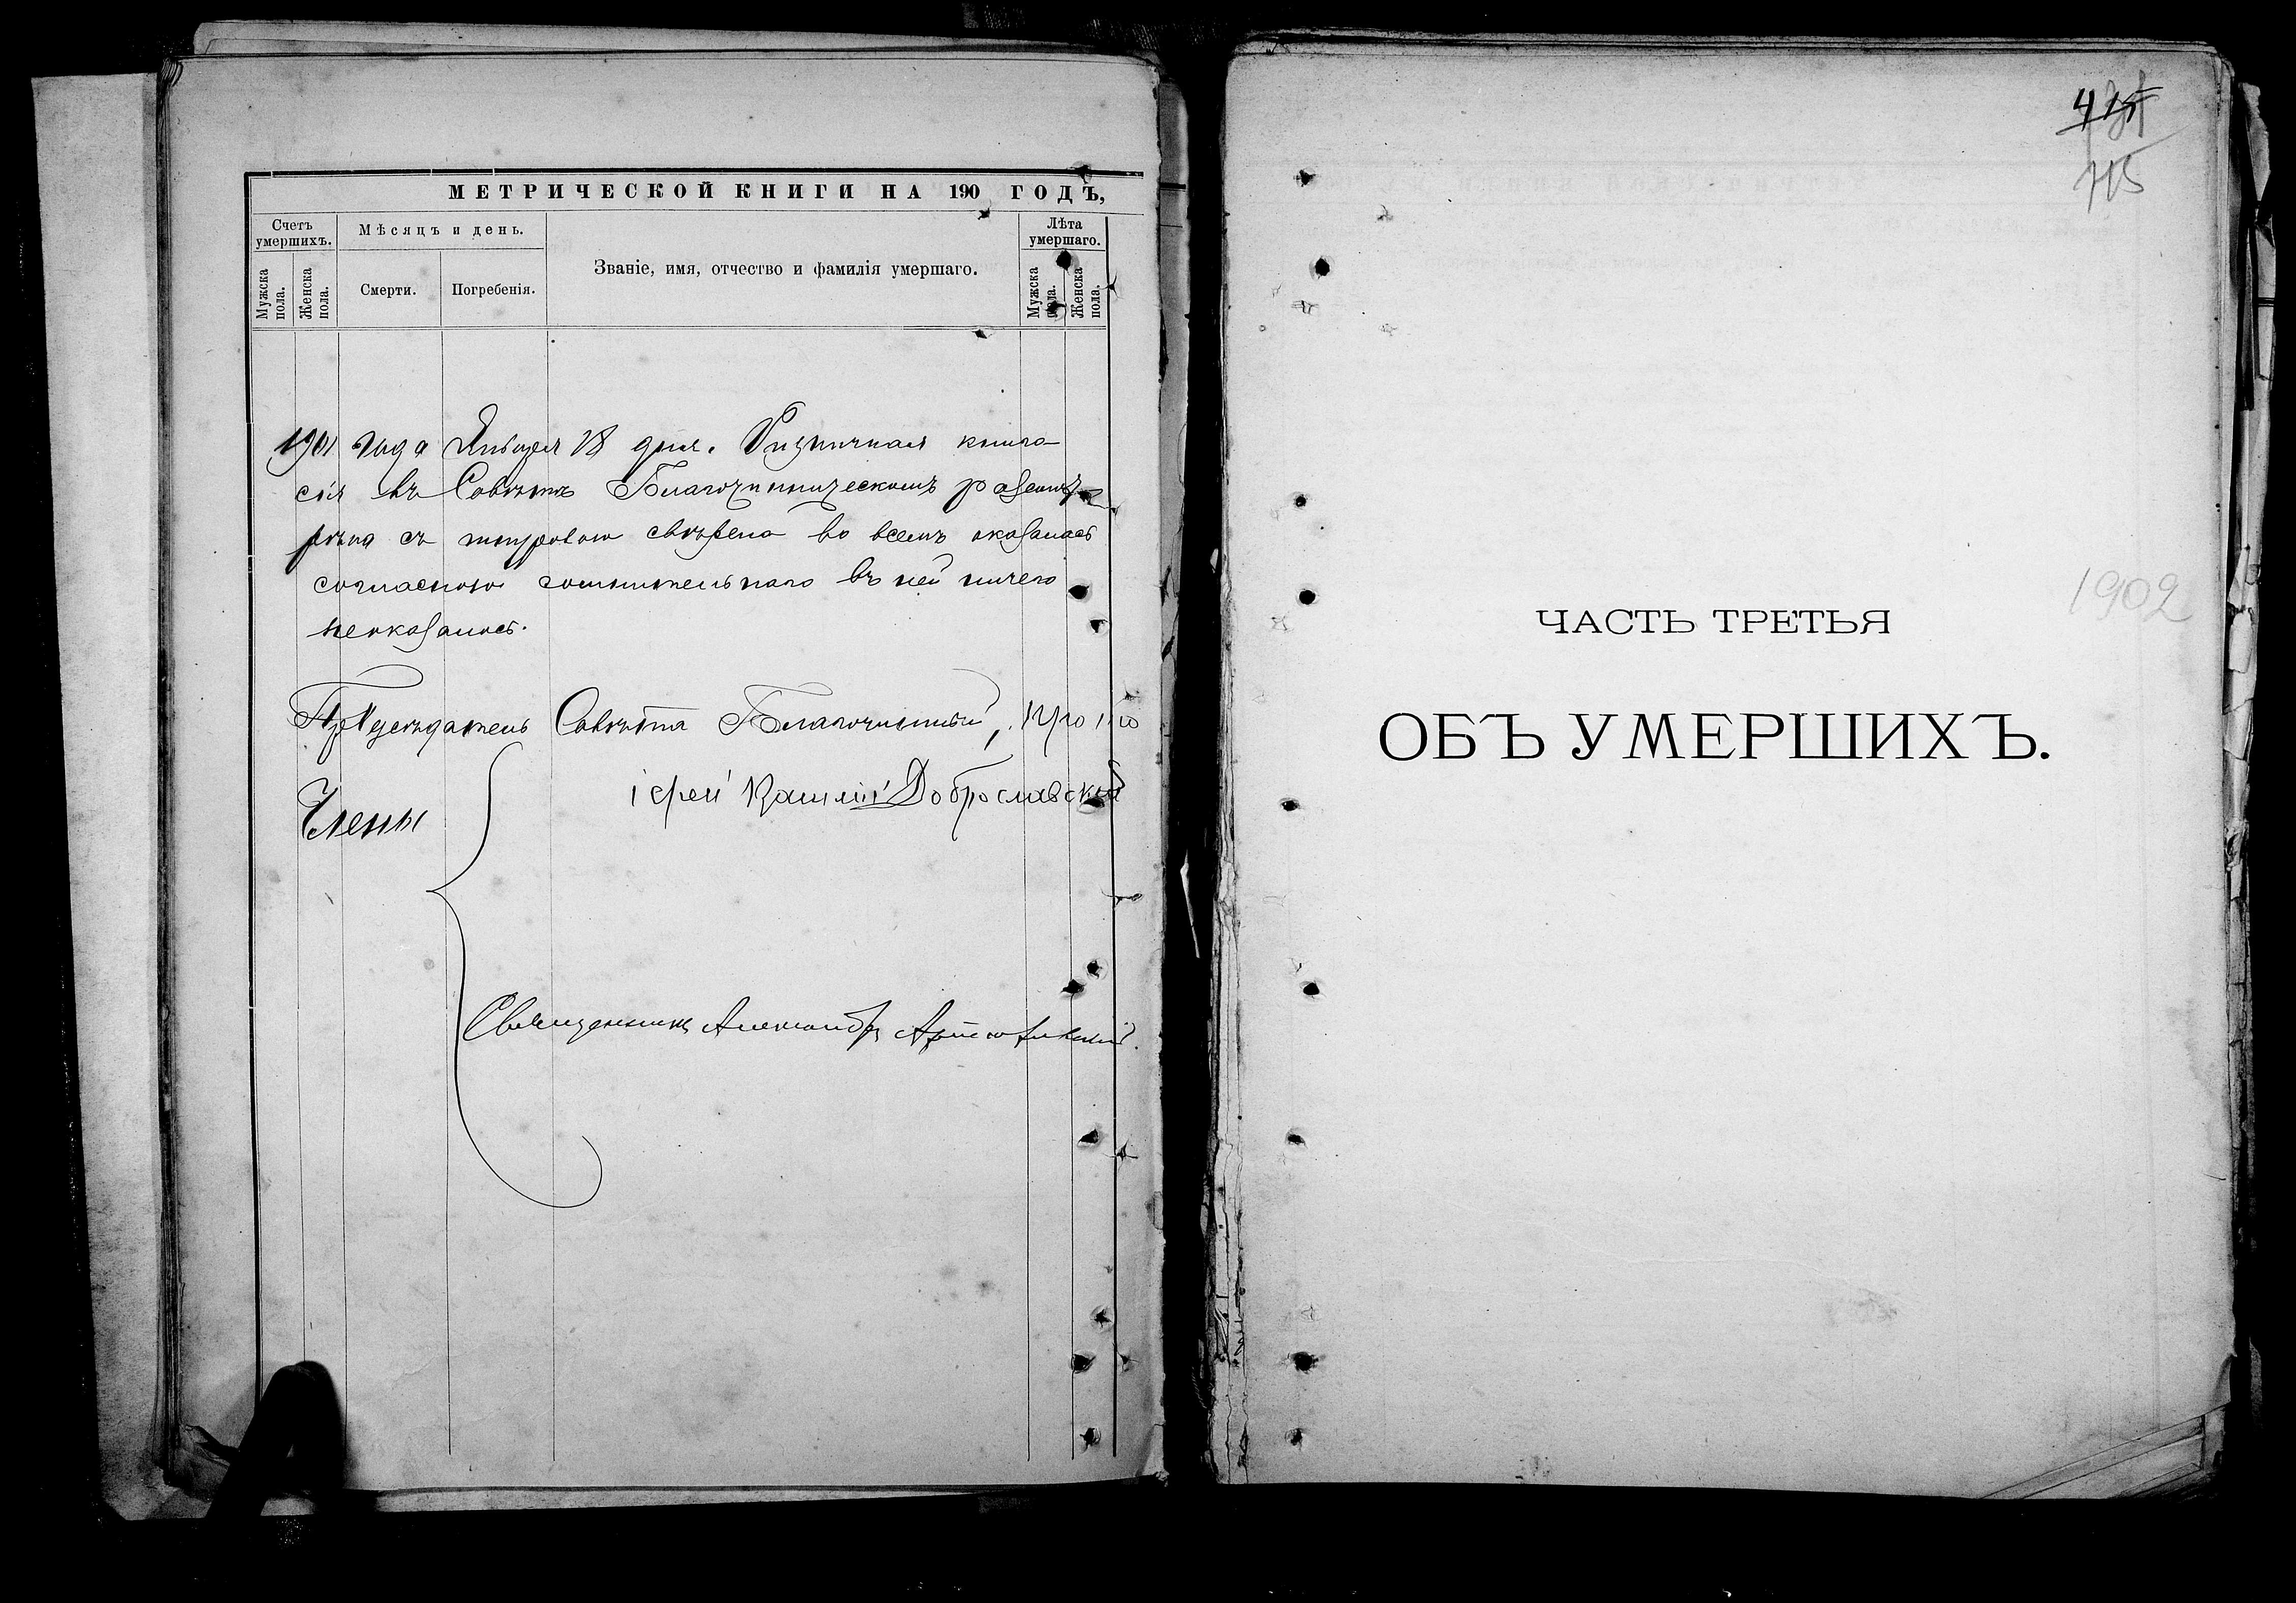 МЕТРИЧЕСКОЙ КНИГИ НА 190 ГОДЪ,
Счетъ умершихъ.
Мѣсяцъ и день.
Званіе, имя, отчество и фамилія умершаго.
Лѣта умершаго.
Мужска пола.
Женска пола.
Смерти.
Погребенія.
Мужска пола.
Женска пола.
1901 года Января 18 дня. Ризничная книга
сія въ Совѣтѣ Благочинническомъ разсмот
рѣна съ шнуровою свѣрена во всемъ оказалась
согласною сомнительнаго въ ней ничего
неоказалось.
Предсѣдатель Совѣта Благочинный,
іерей Доброславскій
Члены
Священникъ Александръ
415
715
1902
ЧАСТЬ ТРЕТЬЯ
ОБЪ УМЕРШИХЪ.